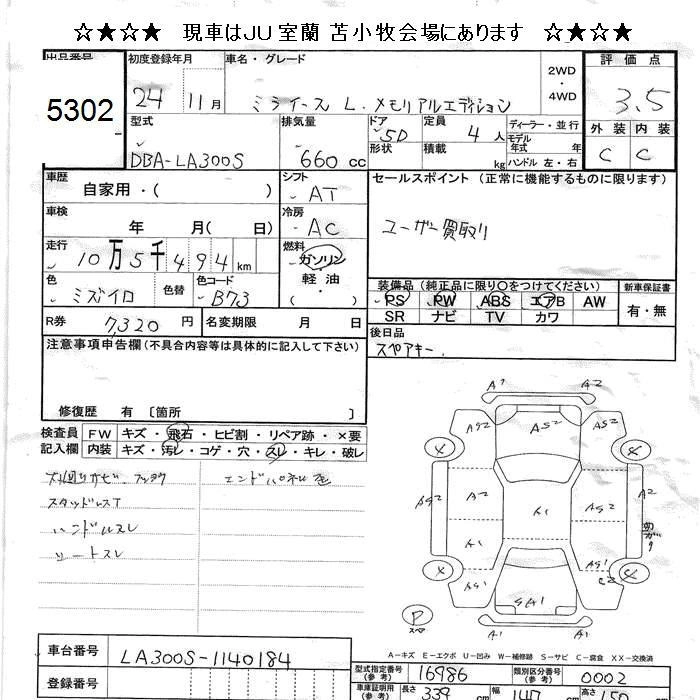 ☆★☆★ 現車はJU室蘭 苫小牧会場にあります ☆★☆★
出品番号
5302
初度登録年月
24 11月
車名・グレード
ミライース L. メモリアルエディション
2WD
・
4WD
評価点
3.5
外装 内装
C C
型式
DBA-LA300S
排気量
660 cc
ドア
5D
形状
定員
4 人
積載
kg
ディーラー・並行
モデル
年式 年
ハンドル 左・右
車歴
自家用・( )
シフト
AT
セールスポイント (正常に機能するものに限ります)
ユーザー買取り
車検
年 月( 日)
冷房
AC
走行
10万5千494km
燃料
ガソリン
軽油
( )
色
ミズイロ
色替
色コード
B73
装備品(純正品に限り〇をつけてください)
PS PW ABS エアB AW
SR ナビ TV カワ
新車保証書
有・無
R券
7,320 円
名変期限 月 日
後日品
スペアキー.
注意事項申告欄(不具合内容等は具体的に記入して下さい)
修復歴 有 〔箇所 〕
検査員
記入欄
FW キズ・飛石・ヒビ割・リペア跡・×要
内装 キズ・汚レ・コゲ・穴・スレ・キレ・破レ
スタッドレスT
ハンドルスレ
シートスレ
A1 A2
A92 AS2 A2
A92 A2 A1 AS2 A2
A1 A91
AS1 C2
SA1
A1 AS1
P
スペア
A－キズ E－エクボ U－凹み W－補修跡 S－サビ C－腐食 XX－交換済
車台番号
LA300S-1140184
登録番号
型式指定番号
(参考)
16986
類別区分番号
(参考)
0002
車庫証明用
(参考)
長さ
339 cm
幅
147 cm
高さ
150 cm